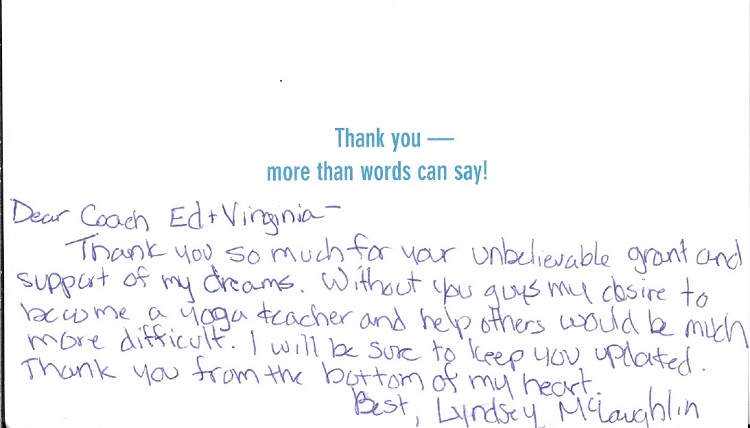 Thank you —
more than words can say!
Dear Coach Ed + Virginia -
Thank you so much for your unbelievable grant and
support of my dreams. Without you guys my desire to
become a yoga teacher and help others would be much
more difficult. I will be sure to keep you updated.
Thank you from the bottom of my heart.
Best, Lyndsey McLaughlin